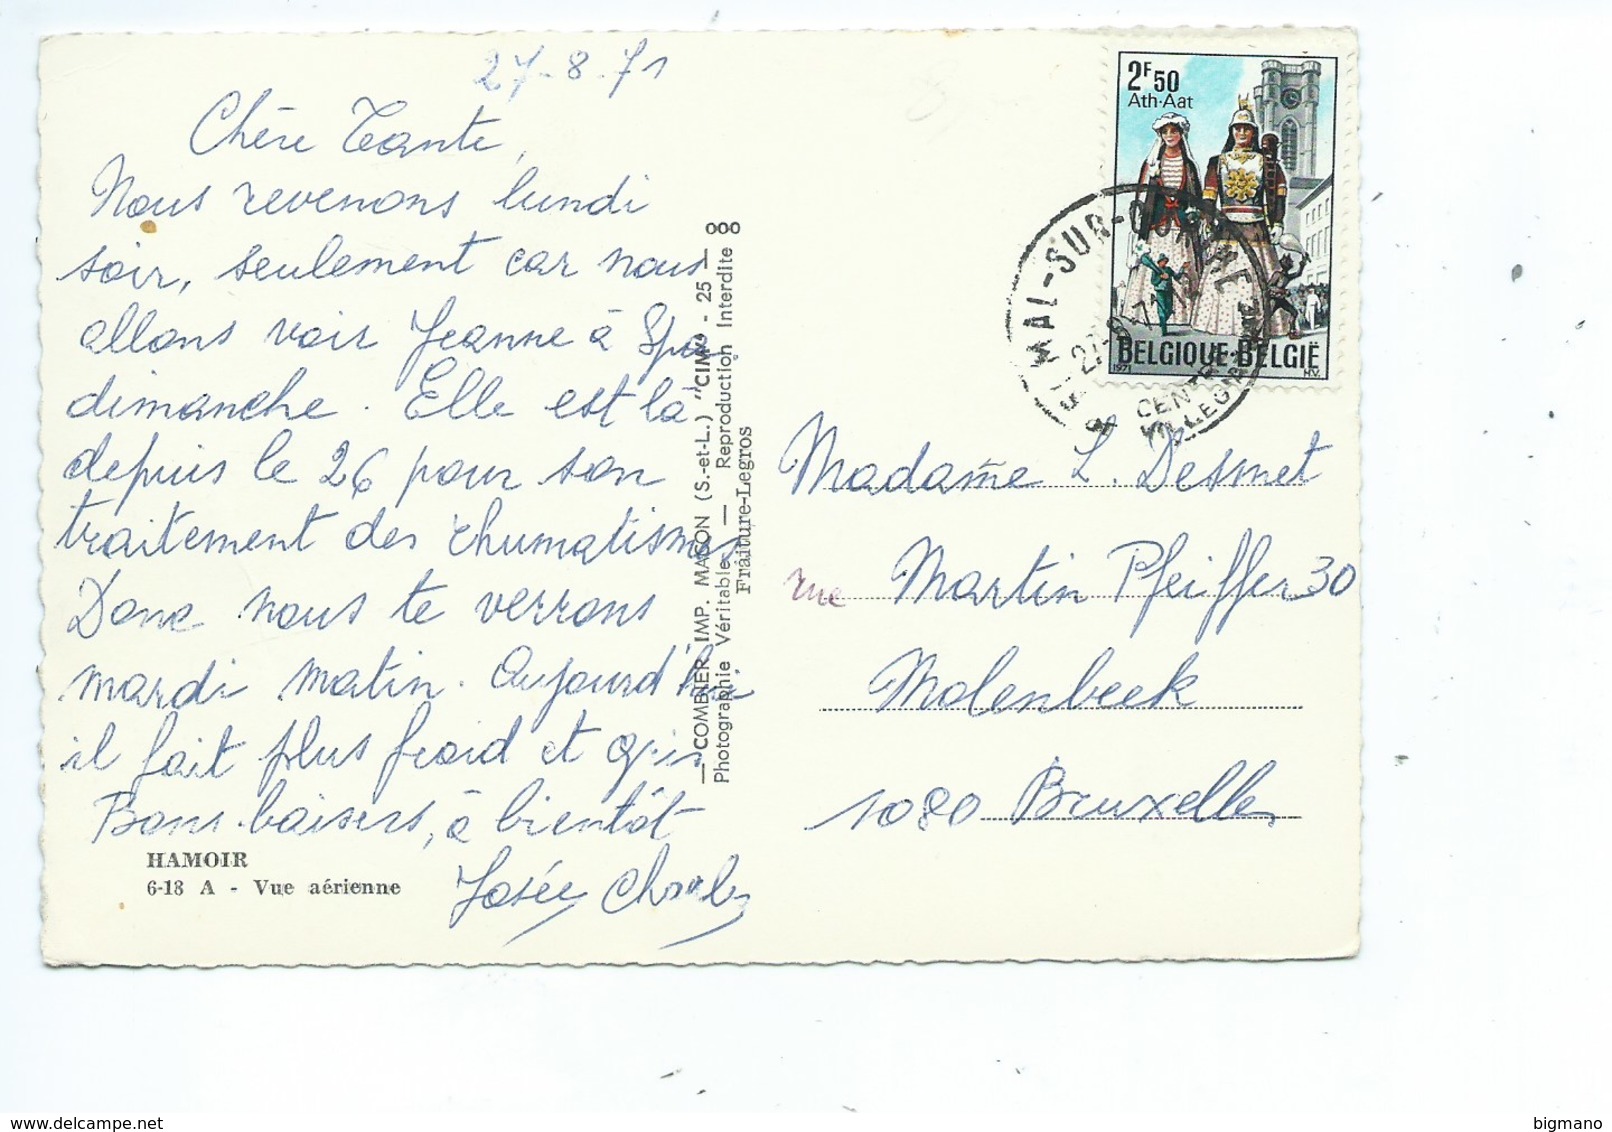 27-8-71
Chère Tante,
Nous revenons lundi
soir, seulement car nous
allons voir Jeanne à Spa
dimanche. Elle est là
depuis le 26 pour son
traitement des rhumatismes
Donc nous te verrons
mardi matin. Aujourd'hui
il fait plus froid et gris
Bons baisers, à bientôt
Josée Charles
HAMOIR
6-18 A - Vue aérienne
— COMBIER IMP. MACON (S.-et-L.) "CIM" - 25 — ooo
Photographie Véritable — Reproduction Interdite
Fraiture-Legros
2F50
Ath-Aat
BELGIQUE-BELGIË
1971
H.V.
MAL-SUR-OURTHE
27-8-71
CENTRE
VILLEGIATURE
Madame L. Desmet
rue Martin Pfeiffer 30
Molenbeek
1080 Bruxelles
bigmano